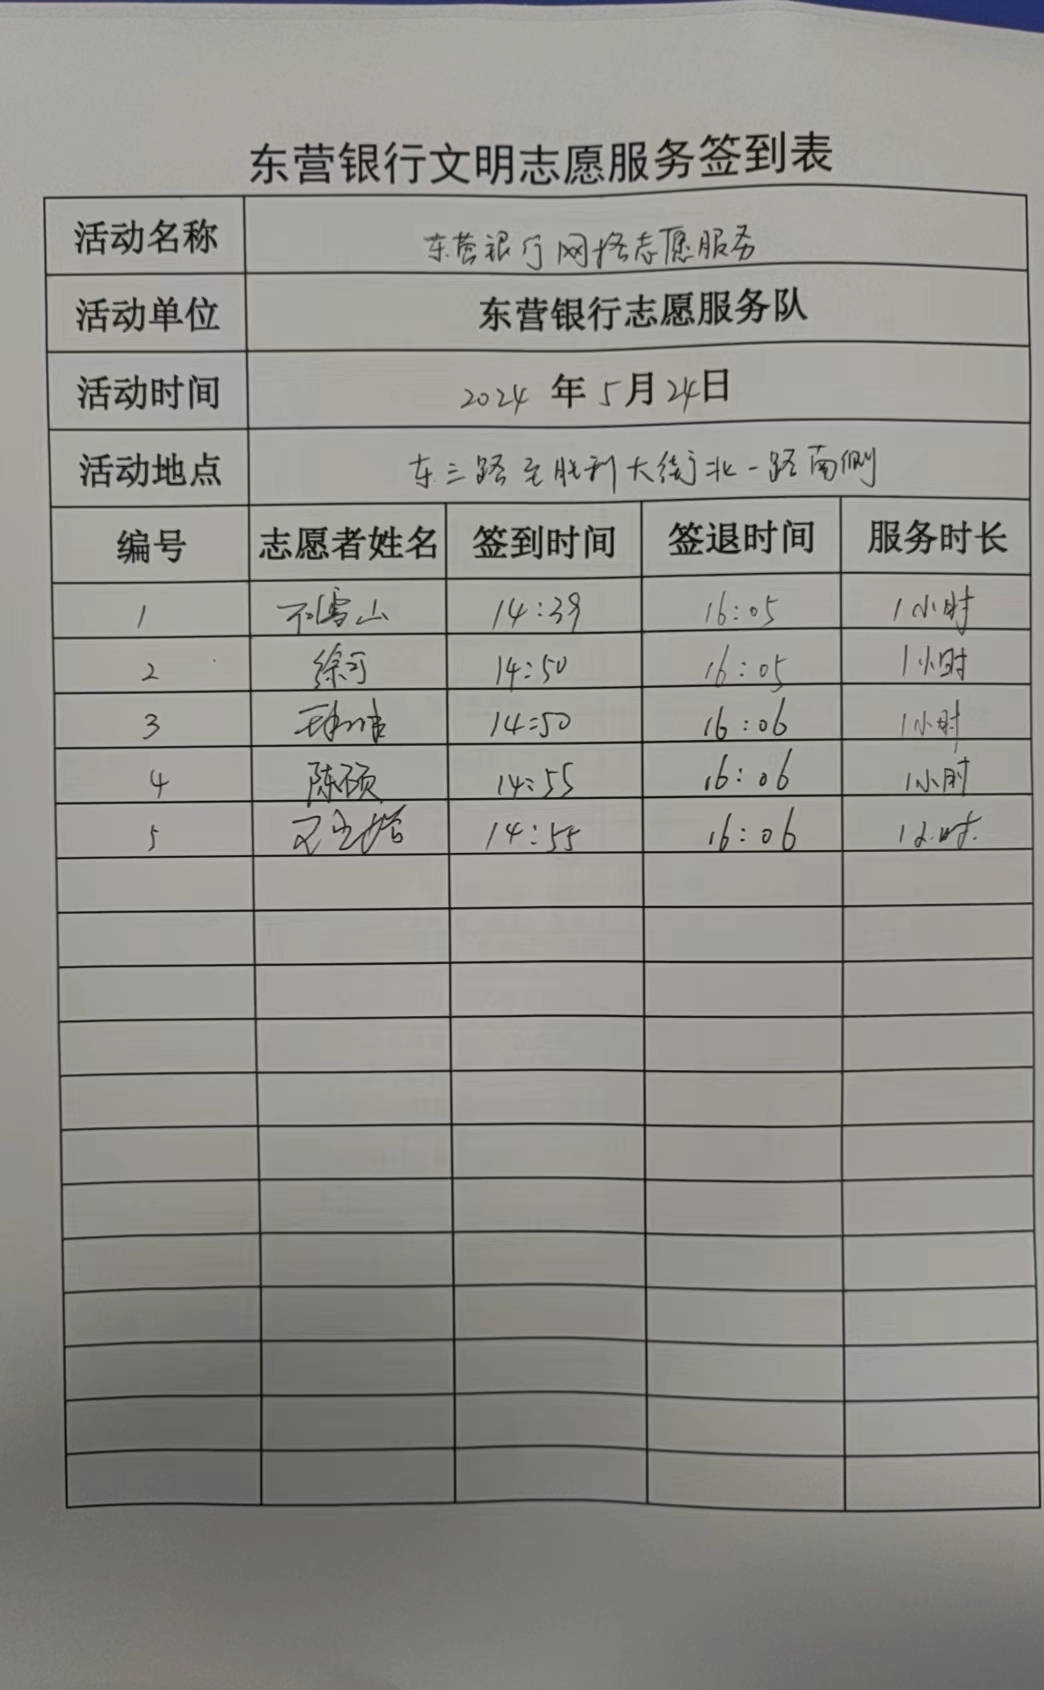 东营银行文明志愿服务签到表
活动名称 东营银行网格志愿服务
活动单位 东营银行志愿服务队
活动时间 2024 年 5 月 24 日
活动地点 东三路至胜利大街北一路南侧
编号 志愿者姓名 签到时间 签退时间 服务时长
1 雪山 14:39 16:05 1小时
2 徐可 14:50 16:05 1小时
3 14:50 16:06 1小时
4 陈硕 14:55 16:06 1小时
5 14:55 16:06 1小时